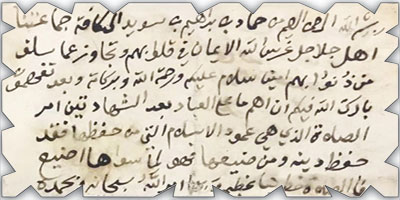 بسم الله الرحمن الرحيم من حماد بن ابراهيم بن سويد الى كافة جماعتنا
اهل جلاجل غرس الله الايمان في قلوبهم وتجاوز عما سلف
من ذنوبهم امين سلام عليكم ورحمة الله وبركاته وبعد
بارك الله فيكم ان اهم ما على العباد بعد الشهادتين امر
الصلاة الذي هي عمود الاسلام التي من حفظها فقد
حفظ دينه ومن ضيعها فهو لما سواها اضيع
الصلاة الله سبحانه وبحمده